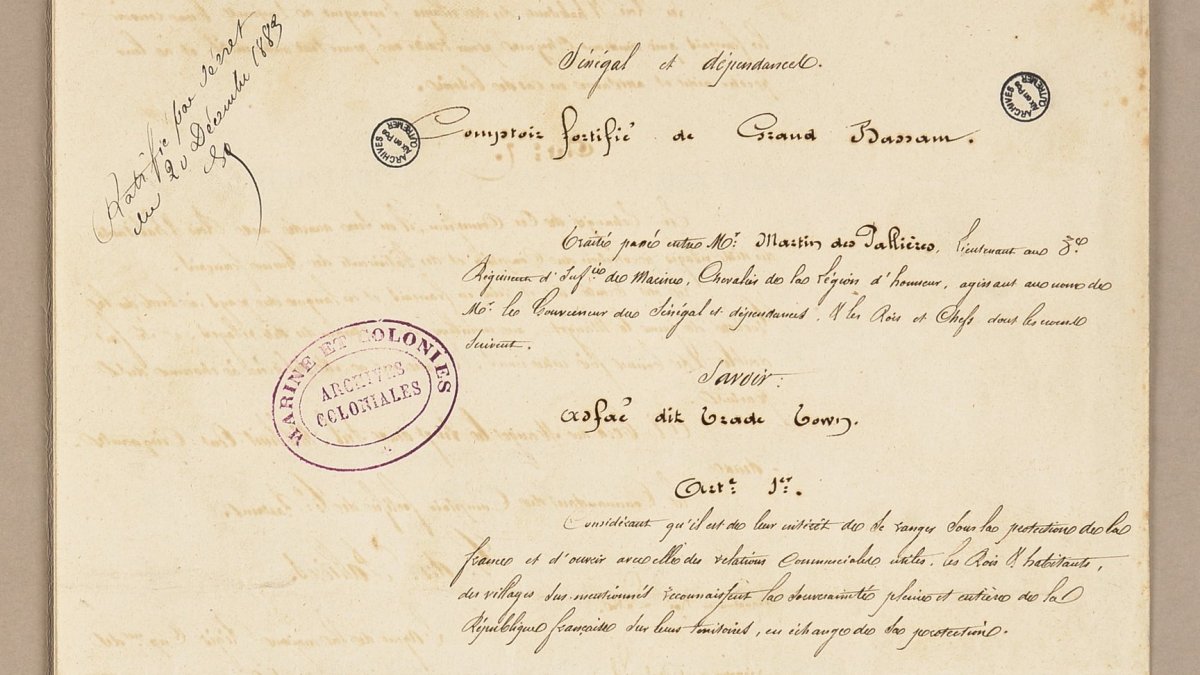 Ratifié par décret
du 20 Décembre 1883
Sénégal et dépendances.
Comptoir fortifié de Grand Bassam.
ARCHIVES
OUTREMER
Aix en Pce
ARCHIVES
OUTREMER
Aix en Pce
Traité passé entre Mr. Martin des Pallières, Lieutenant au 3e
Régiment d'Infrie de Marine, Chevalier de la Légion d'honneur, agissant au nom de
Mr. le Gouverneur du Sénégal et dépendances, & les Rois et Chefs dont les noms
suivent.
Savoir:
dit Trade Town.
MARINE ET COLONIES
ARCHIVES
COLONIALES
Arte 1er.
Considérant qu'il est de leur intérêt de se ranger sous la protection de la
france et d'ouvrir avec elle des relations commerciales utiles, les Rois & habitants,
des villages sus-mentionnés reconnaissent la souveraineté pleine et entière de la
République française sur leurs territoires, en échange de sa protection.